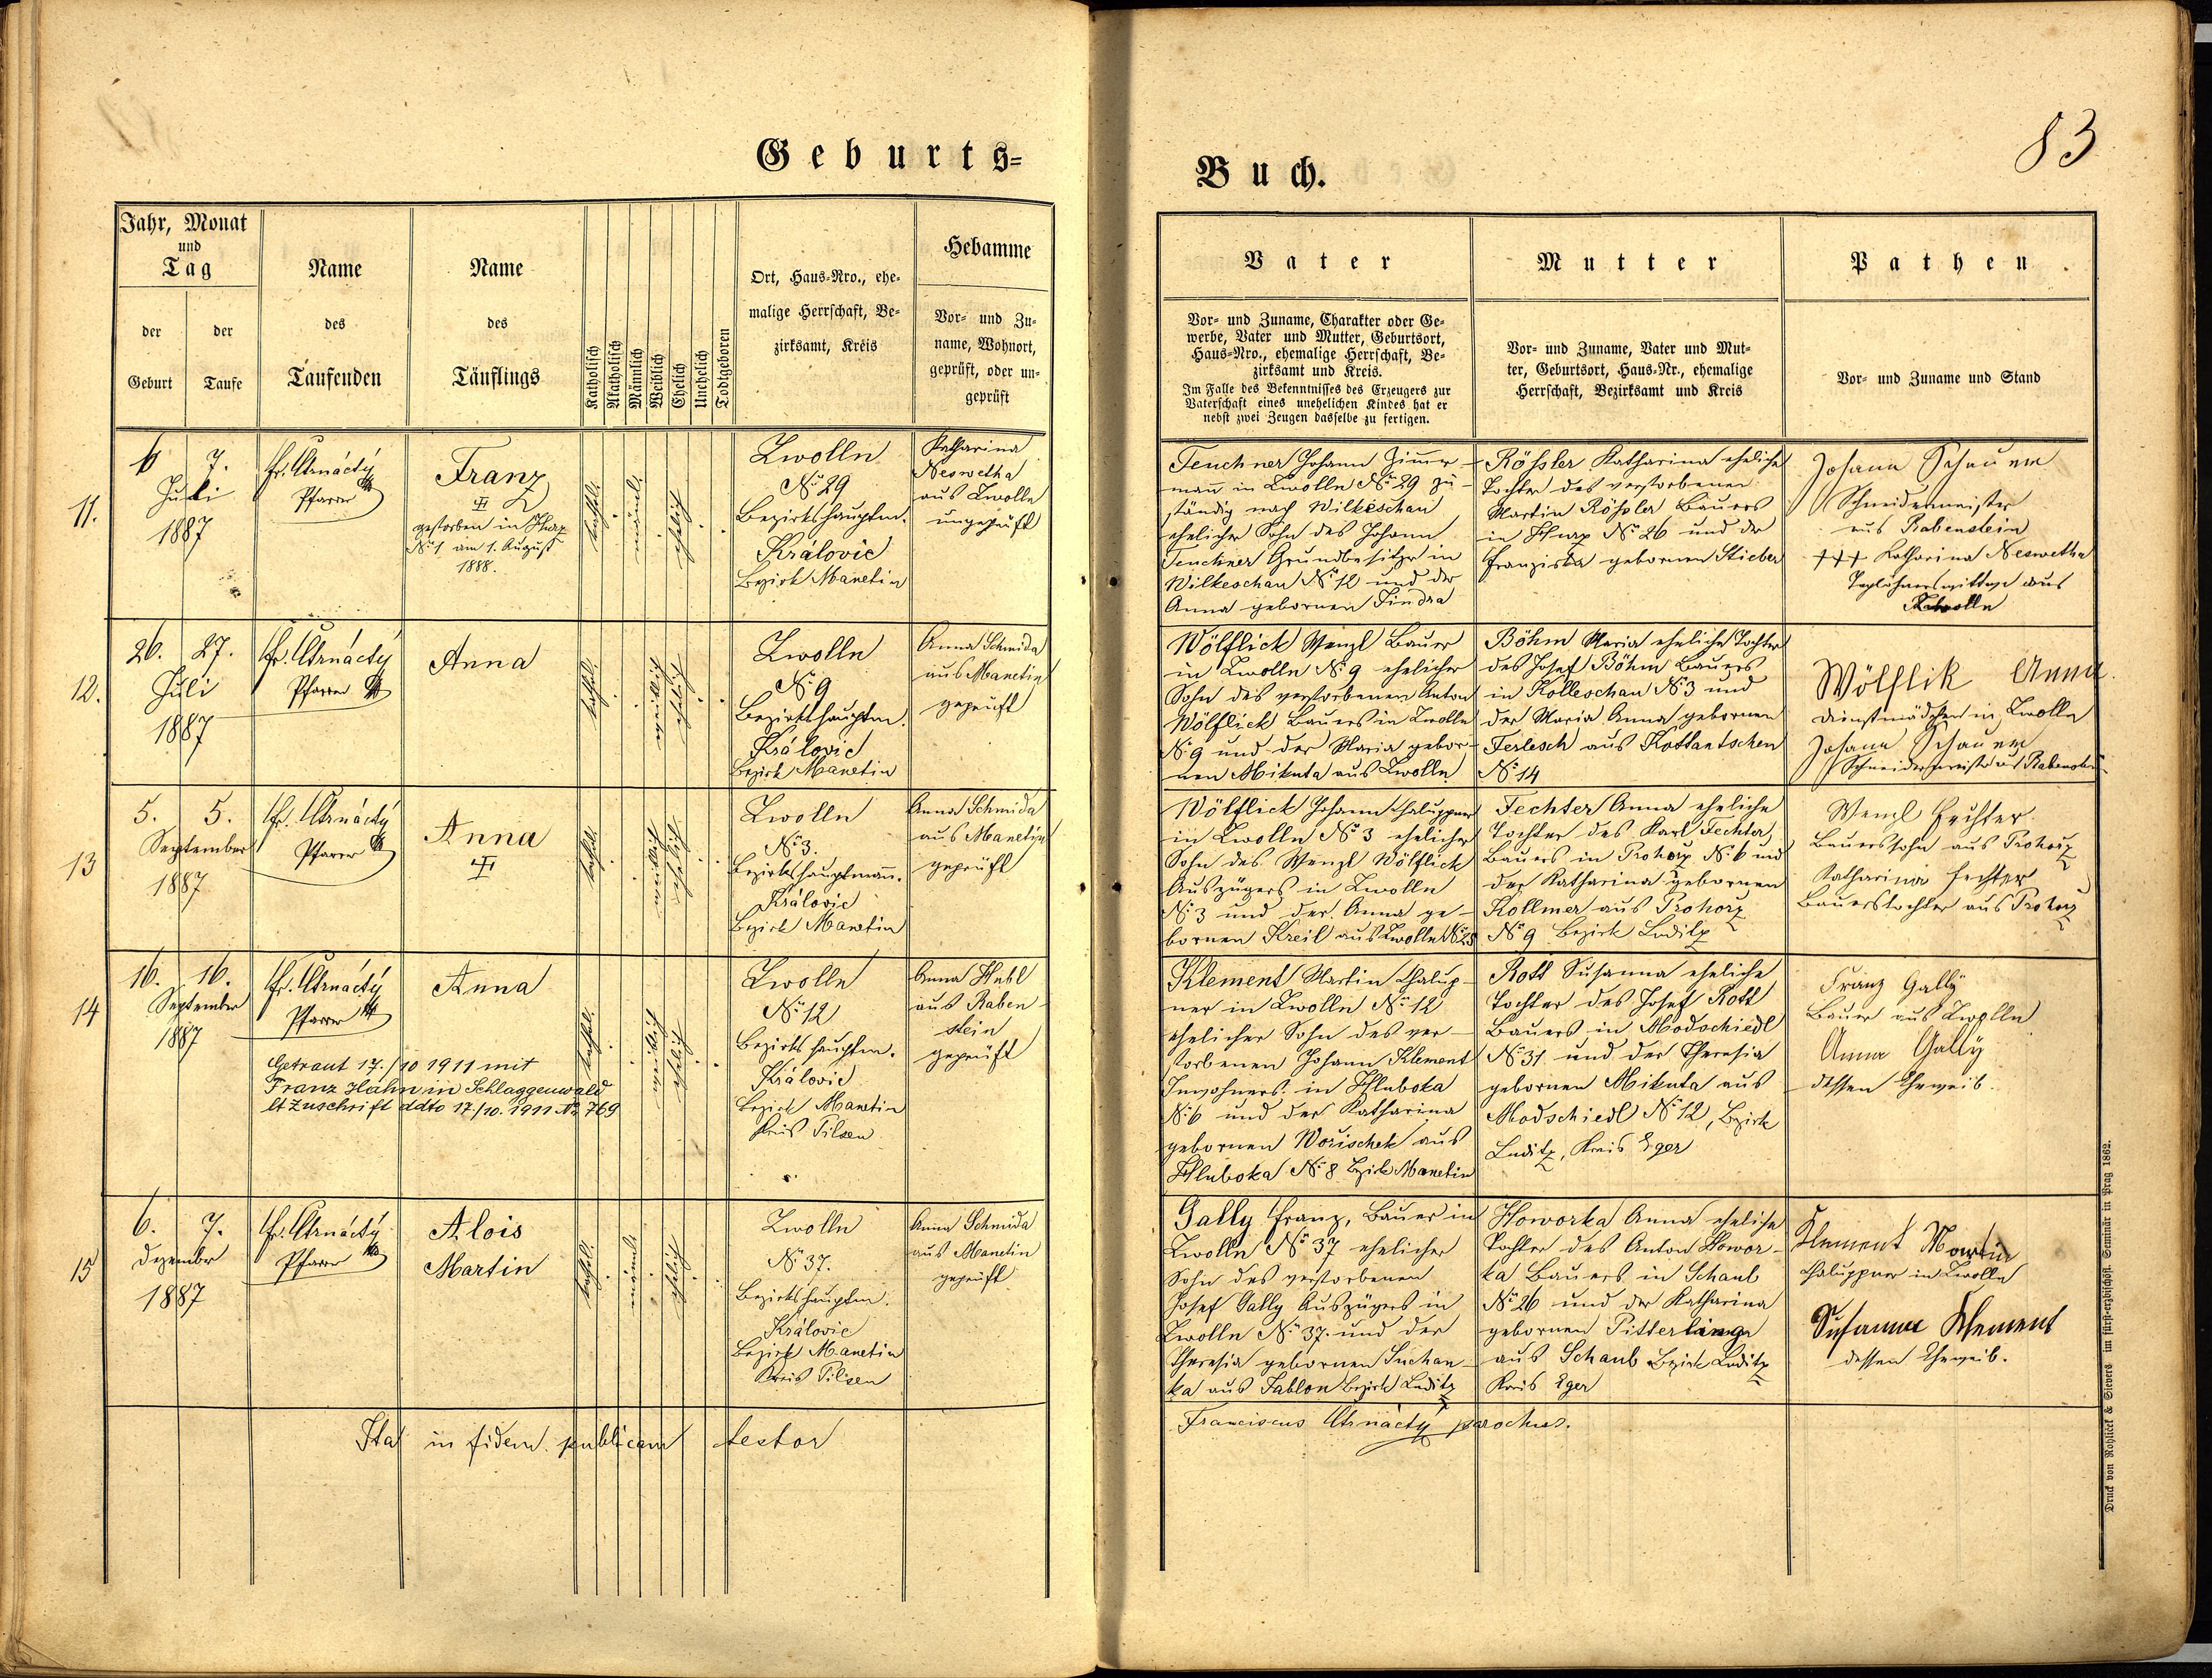 Geburts-
Buch.
83
Jahr, Monat
und
Tag
der
Geburt
der
Taufe
Name
des
Taufenden
Name
des
Täuflings
Katholisch
Akatholisch
Männlich
Weiblich
Ehelich
Unehelich
Todtgeboren
Ort, Haus-Nro., ehe-
malige Herrschaft, Be-
zirksamt, Kreis
Hebamme
Vor- und Zu-
name, Wohnort,
geprüft, oder un-
geprüft
Vater
Vor- und Zuname, Charakter oder Ge-
werbe, Vater und Mutter, Geburtsort,
Haus-Nro., ehemalige Herrschaft, Be-
zirksamt und Kreis.
Im Falle des Bekenntnisses des Erzeugers zur
Vaterschaft eines unehelichen Kindes hat er
nebst zwei Zeugen dasselbe zu fertigen.
Mutter
Vor- und Zuname, Vater und Mut-
ter, Geburtsort, Haus-Nr., ehemalige
Herrschaft, Bezirksamt und Kreis
Pathen.
Vor- und Zuname und Stand
11.
6 7.
Juli
1887
Fr. Utrnáctý
Pfarrer
Franz
gestorben in
No 1 am 1. August
1888.
kathol.
männl.
ehelich
Zwolln
No 29
Bezirkshauptm.
Královic
Bezirk Manetin
Katharina
Neswetha
aus Zwolln
ungeprüft
Teuchner Johann Zimmer-
mann in Zwolln No 29 zu-
ständig nach Wilkeschau
ehelicher Sohn des Johann
Teuchner Grundbesitzer in
Wilkeschau No 12 und der
Anna gebornen Jindra
Rößler Katharina eheliche
Tochter des verstorbenen
Martin Rößler Bauers
in No 26 und der
Franziska gebornen Stieber
Johann Schauer
Schneidermeister
aus Rabenstein
+++ Katharina Neswetha
Taglöhnerswittwe aus
Zwolln
12.
26. 27.
Juli
1887
Fr. Utrnáctý
Pfarrer
Anna
kathol.
weiblich
ehelich
Zwolln
No 9
Bezirkshauptm.
Královic
Bezirk Manetin
Anna Schmida
aus Manetin
geprüft
Wölflick Wenzl Bauer
in Zwolln No 9 ehelicher
Sohn des verstorbenen Anton
Wölflick Bauers in Zwolln
No 9 und der Maria gebor-
nen Mikuta aus Zwolln
Böhm Maria eheliche Tochter
des Josef Böhm Bauers
in Kolleschau No 3 und
der Maria Anna gebornen
Ferlesch aus Kottantschen
No 14
Wölflik Anna
Dienstmädchen in Zwolln
Johann Schauer
Schneidermeister aus Rabenstein
13
5. 5.
September
1887
Fr. Utrnáctý
Pfarrer
Anna
kathol.
ehelich
Zwolln
No 3.
Bezirkshauptmann.
Královic
Bezirk Manetin
Anna Schmida
aus Manetin
geprüft
Wölflick Johann Chaluppner
in Zwolln No 3 ehelicher
Sohn des Wenzl Wölflick
Auszügers in Zwolln
No 3 und der Anna ge-
bornen Kreil aus Zwolln No 25
Fechter Anna eheliche
Tochter des Karl Fechter,
Bauers in Prohorz No 6 und
der Katharina gebornen
Kollmer aus Prohorz
No 9 Bezirk Luditz
Wenzl Fechter
Bauerssohn aus Prohorz
Katharina Fechter
Bauerstochter aus Prohorz
14
16. 16.
September
1887
Fr. Utrnáctý
Pfarrer
Anna
Getraut 17./10 1911 mit
Franz Hahn in Schlaggenwald
lt Zuschrift ddto 17./10. 1911 No 769
kathol.
ehelich
Zwolln
No 12
Bezirkshauptm.
Královic
Bezirk Manetin
Kreis Pilsen
Anna
aus Raben-
stein
geprüft
Klement Martin Chalup-
ner in Zwolln No 12
ehelicher Sohn des ver-
storbenen Johann Klement
Inwohners in Hluboka
No 6 und der Katharina
gebornen Worischek aus
Hluboka No 8 Bezirk Manetin
Rott Susanna eheliche
Tochter des Josef Rott
Bauers in Modschiedl
No 31 und der Theresia
gebornen Mikuta aus
Modschiedl No 12, Bezirk
Luditz, Kreis Eger
Franz Gally
Bauer aus Zwolln
Anna Gally
dessen Eheweib.
15
6. 7.
Dezember
1887
Fr. Utrnáctý
Pfarrer
Alois
Martin
kathol.
männl.
ehelich
Zwolln
No 37.
Bezirkshauptm.
Královic
Bezirk Manetin
Kreis Pilsen
Anna Schmida
aus Manetin
geprüft
Gally Franz, Bauer in
Zwolln No 37 ehelicher
Sohn des verstorbenen
Josef Gally Auszügers in
Zwolln No 37. und der
Theresia gebornen Suchan-
ka aus Jablon Bezirk Luditz
Howorka Anna eheliche
Tochter des Anton Howor-
ka Bauers in Schaub
No 26 und der Katharina
gebornen Pitterling
aus Schaub Bezirk Luditz
Kreis Eger
Klement Martin
Chaluppner in Zwolln
Susanna Klement
dessen Eheweib.
Ita in fidem publicam testor
Franciscus Utrnáctý parochus.
Druck von Rohlíček & Sievers im fürst-erzbischöfl. Seminär in Prag 1862.